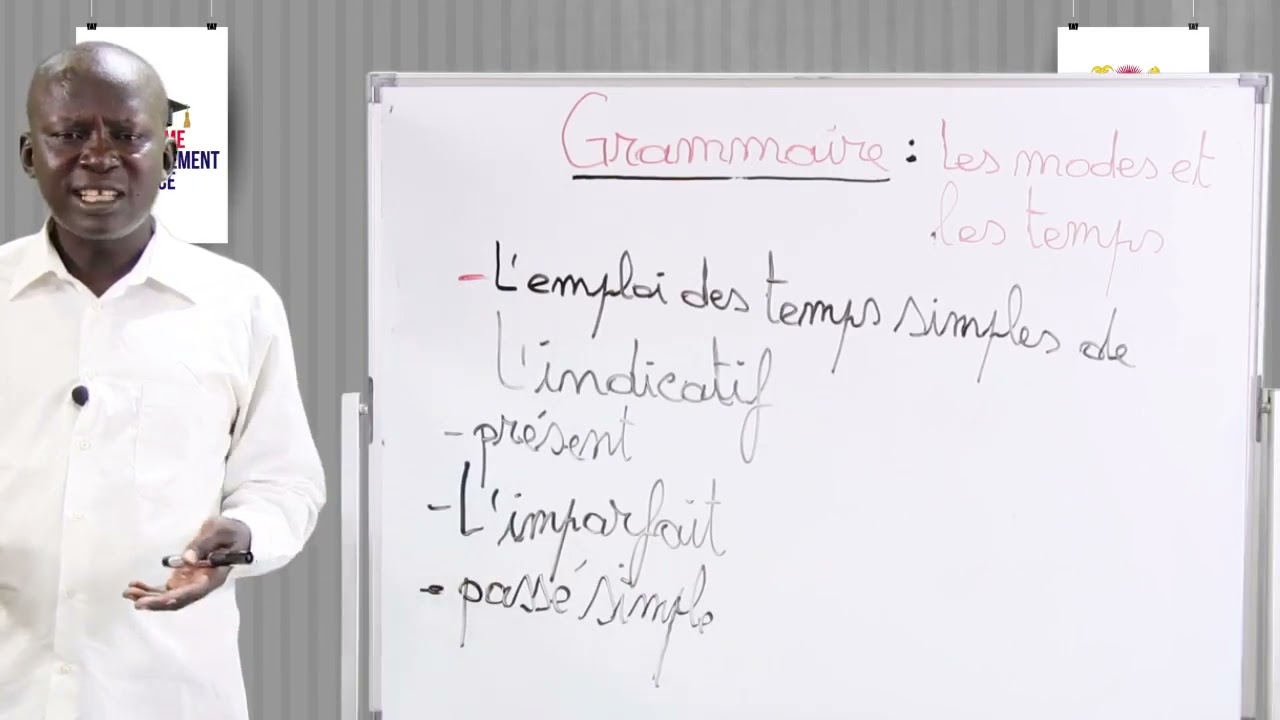 Grammaire : Les modes et
les temps
- L'emploi des temps simples de
l'indicatif
- présent
- L'imparfait
- passé simple